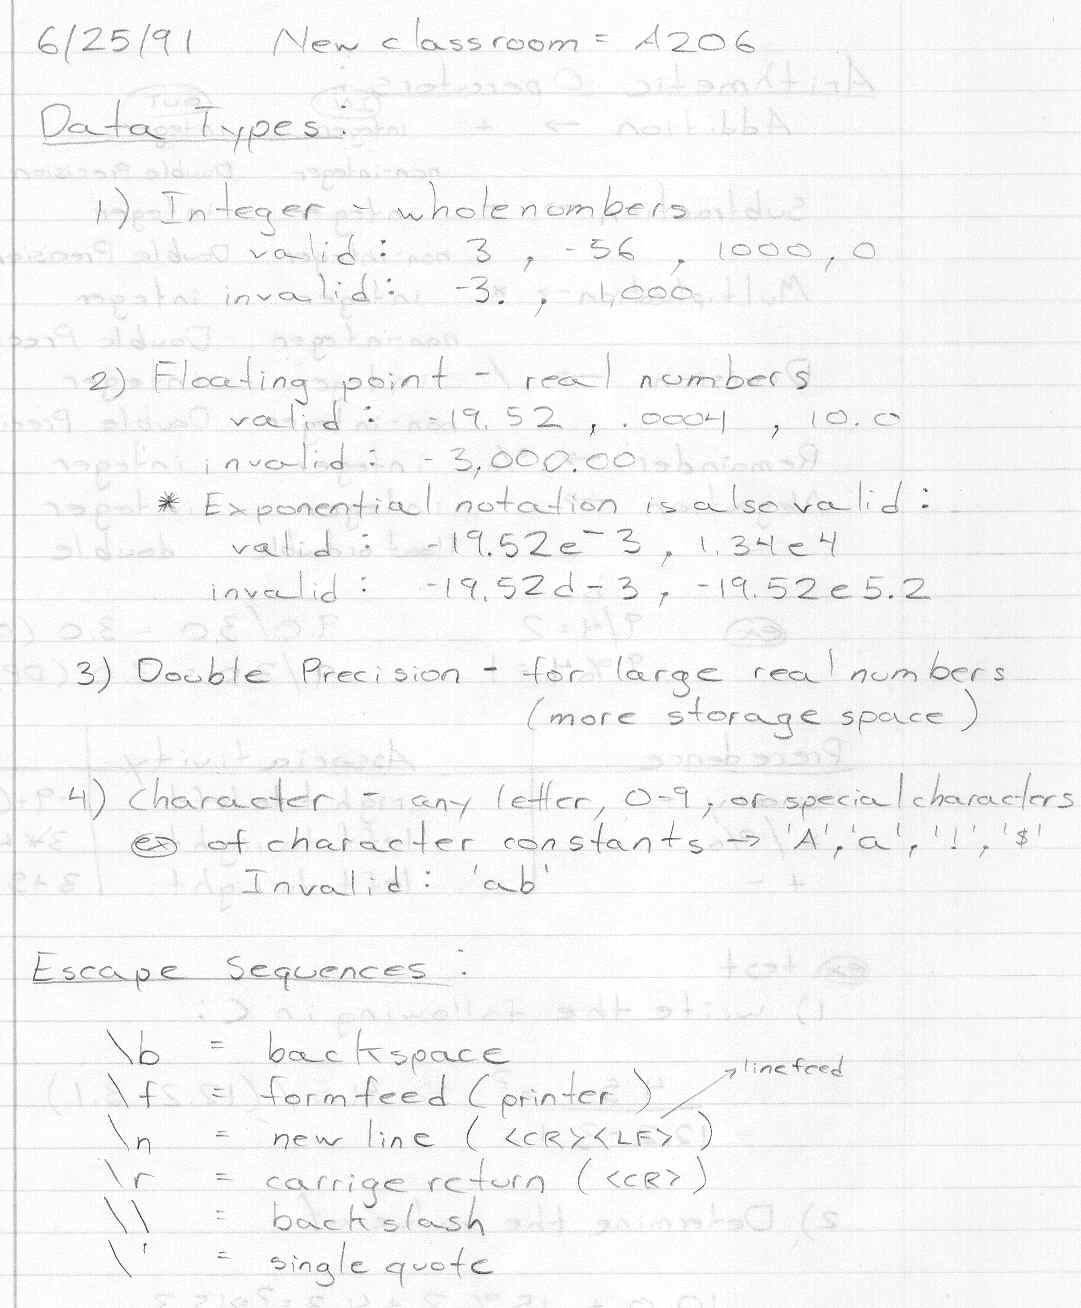 6/25/91 New classroom = A206
Data Types:
1) Integer - whole numbers
valid: 3, -56, 1000, 0
invalid: -3., 1,000
2) Floating point - real numbers
valid: -19.52, .0004, 10.0
invalid: -3,000.00
* Exponential notation is also valid:
valid: -19.52e-3, 1.34e4
invalid: -19.52d-3, -19.52e5.2
3) Double Precision - for large real numbers
(more storage space)
4) Character - any letter, 0-9, or special characters
ex of character constants → 'A', 'a', '!', '$'
Invalid: 'ab'
Escape Sequences:
\b = backspace
linefeed
\f = formfeed (printer)
\n = new line (<CR><LF>)
\r = carrige return (<CR>)
\\ = backslash
\' = single quote